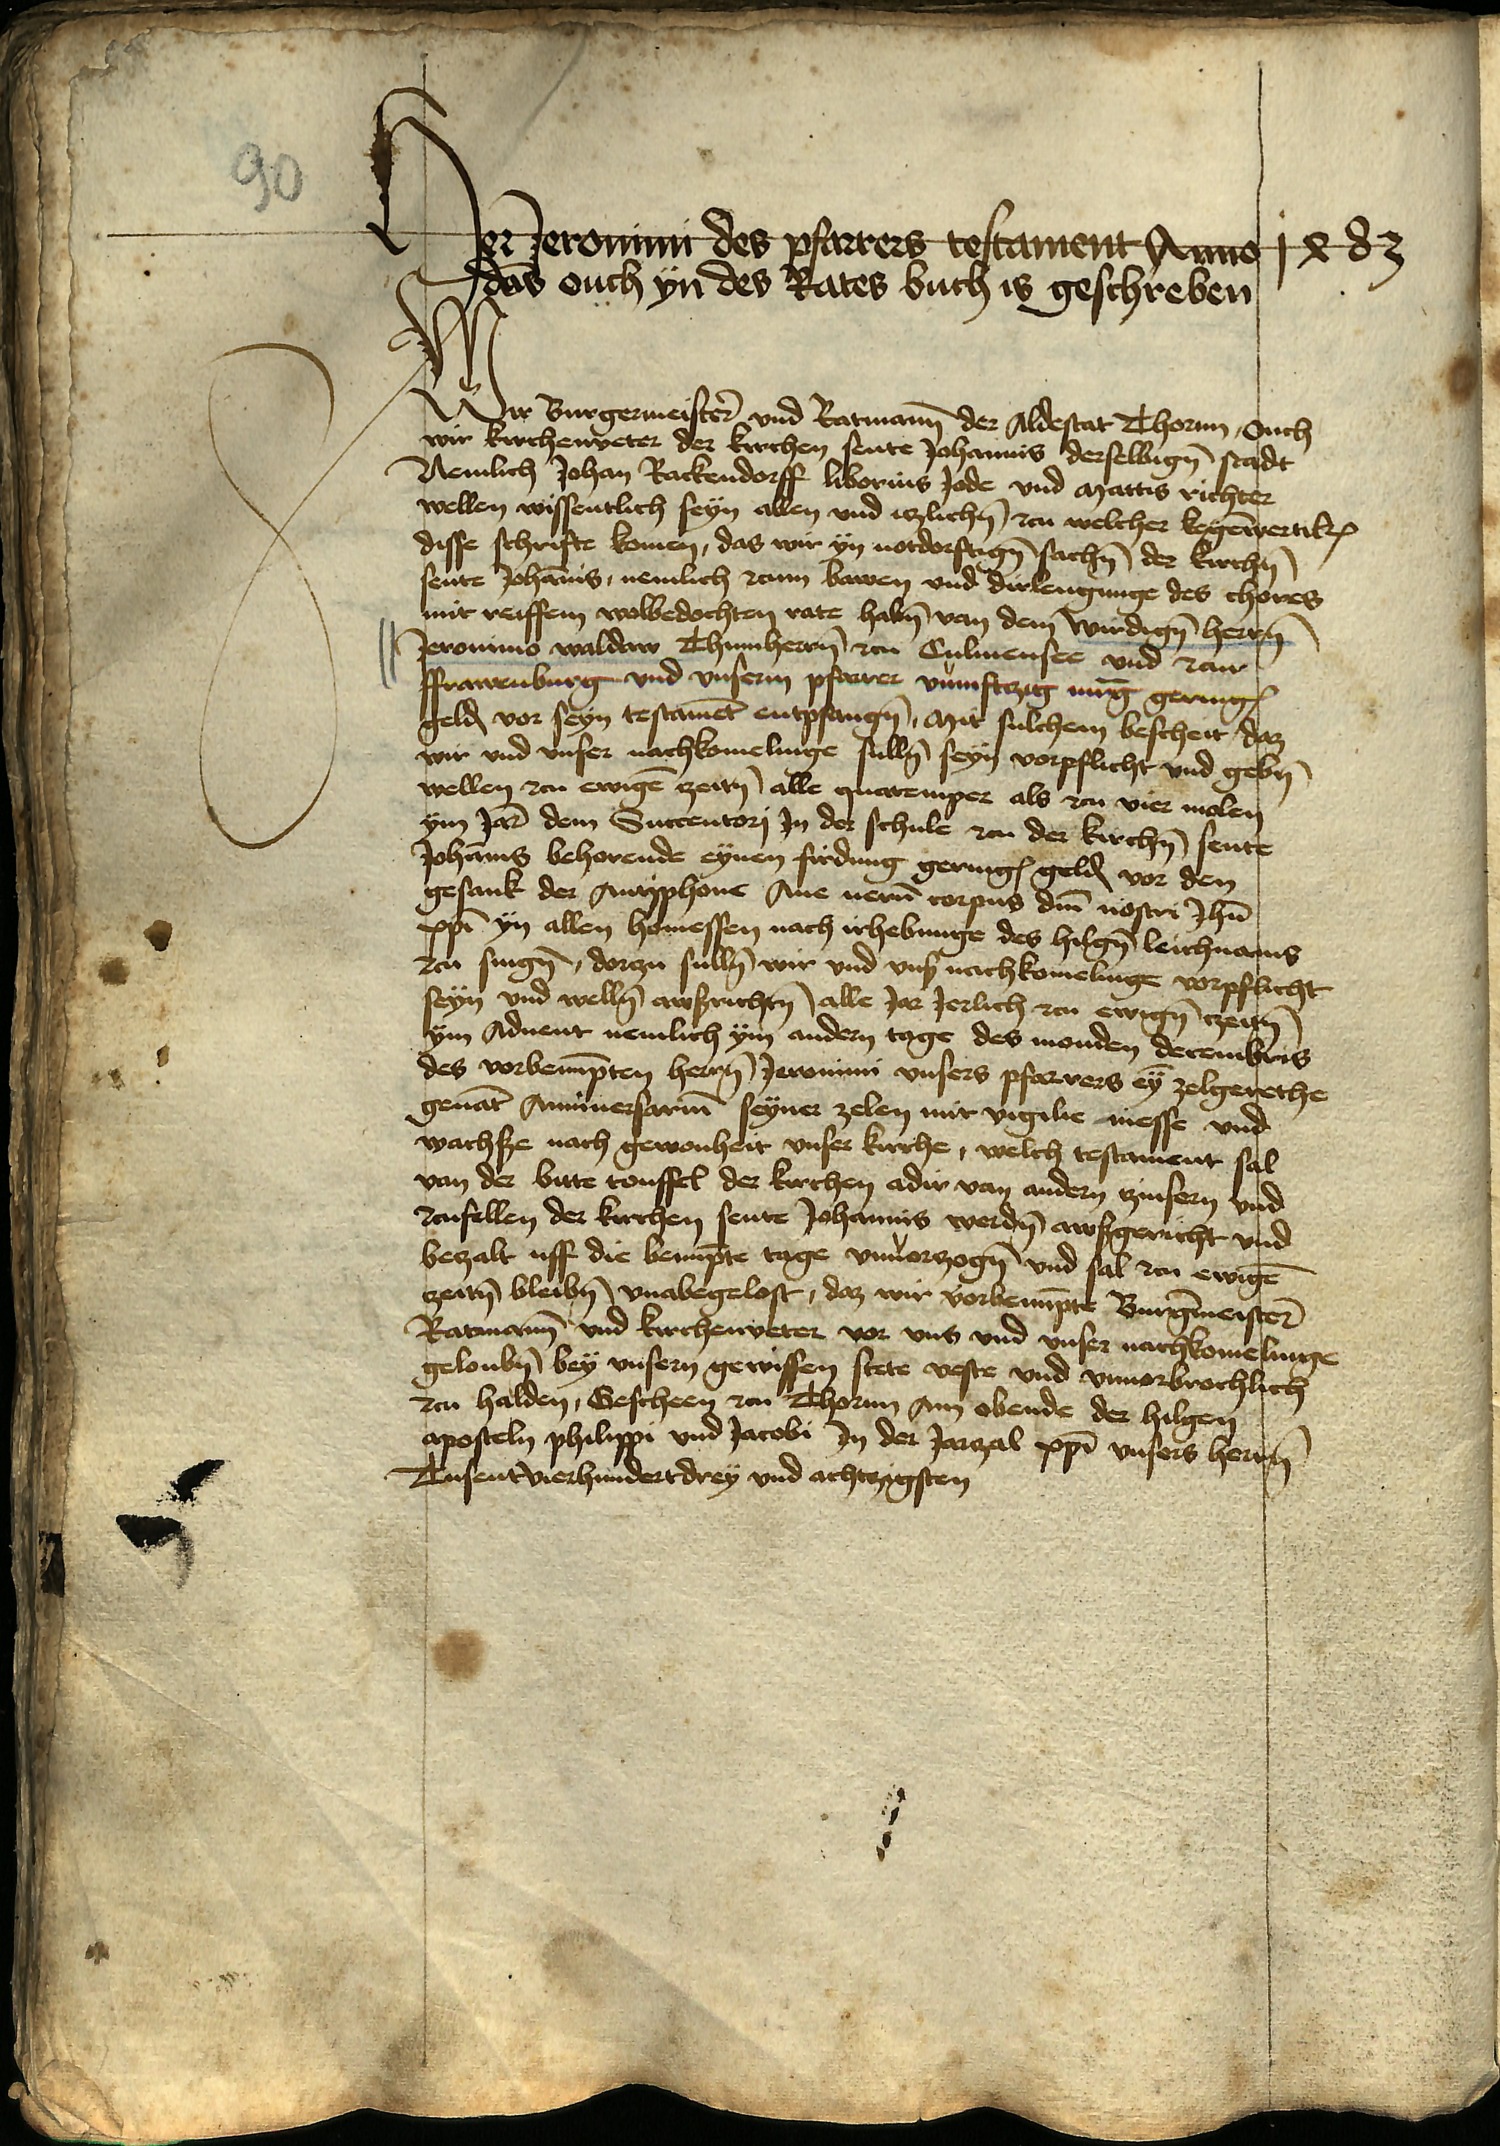 90
Her Jeronimi des pfarrers testament Anno 1483
das ouch yn des Rates buch is geschreben
Wir Burgermeister̄ vnd Ratmann̄ der Aldestat Thorun, Ouch
wir kirchenveter der kirchen sente Johannis derselbign̄ stadt
Nemlich Johan Rackendorff liborius Jode vnd Mattis richter
wellen wissentlich seyn allen vnd itzlichn̄ czu welcher kegēwertik
disse schrifte komen, das wir yn notdorftign̄ sachn̄ der kirchn̄
sente Johānis, nemlich czum bawen vnd dirlengunge des chores
mit reiffem wolbedochten rate habn̄ van dem wirdign̄ herrn̄
Jeronimo waldaw Thumherrn̄ czu Culmensee vnd czur
ffrawenburg vnd vnserm pfarrer vumftczig mrḡ gering
geld vor seyn testamēt entpfangn̄, Mit sulchem bescheit daz
wir vnd vnser nachkomelinge sulln̄ seyn vorpflicht vnd gebn̄
wellen czu ewigē tzeitn̄ alle quatemper als czu vier molen
ym Jar̄ dem Succentori In der schule czu der kirchn̄ sente
Johānis behorende eynen firdung gering geld vor den
gesank der Antyphone Aue uerū corpus dn̄i nostri Jhū
xpī yn allen homessen nach irhebunge des hilgn̄ leichnams
czu singn̄, dorczu sulln̄ wir vnd vns̄ nachkomelinge vorpflicht
seyn vnd welln̄ awsrichtn̄ alle Jar Jerlich czu ewign̄ tzeitn̄
ym Aduent nemlich ym andern tage des monden decembris
des vorbenūpten herrn̄ Jeronimi vnsers pfarrers eȳ zelgerethe
genāt Anniuersariū seyner zelen mit vigilie messe vnd
wachsze nach gewonheit vnser kirche, welch testament sal
van der bitte touffel der kirchen adir van andern tzinsern vnd
czufellen der kirchen sente Johannis werdn̄ awsgericht vnd
beczalt uff die benūpte tage vnuorzogn̄ vnd sal czu ewigē
tzeitn̄ bleibn̄ vnabegelost, daz wir vorbenūpte Burḡmeister̄
Ratmann̄ vnd kirchenveter vor vns vnd vnser nachkomelinge
geloubn̄ bey vnsern gewissen stete veste vnd vnuorbrochlich
czu halden, Gescheen czu Thorun Am obende der hilgen
aposteln philippi vnd Jacobi In der Jarzal xpī vnsers herrn̄
Tusentvierhundertdrey vnd achtzigsten